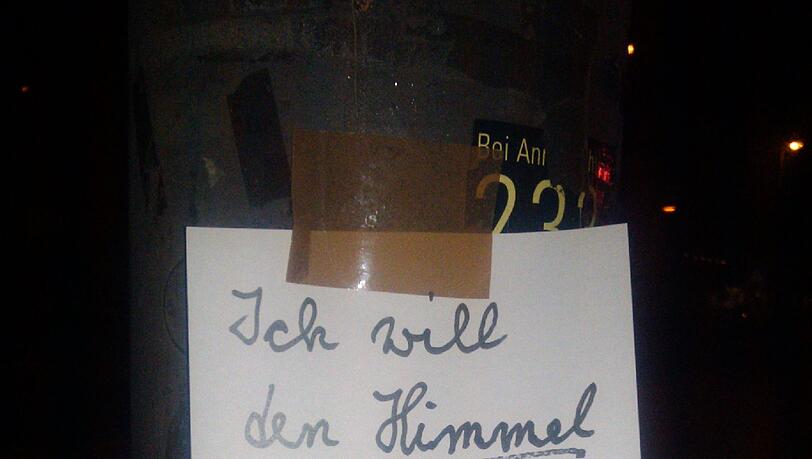 Bei
232
Ich will
den Himmel